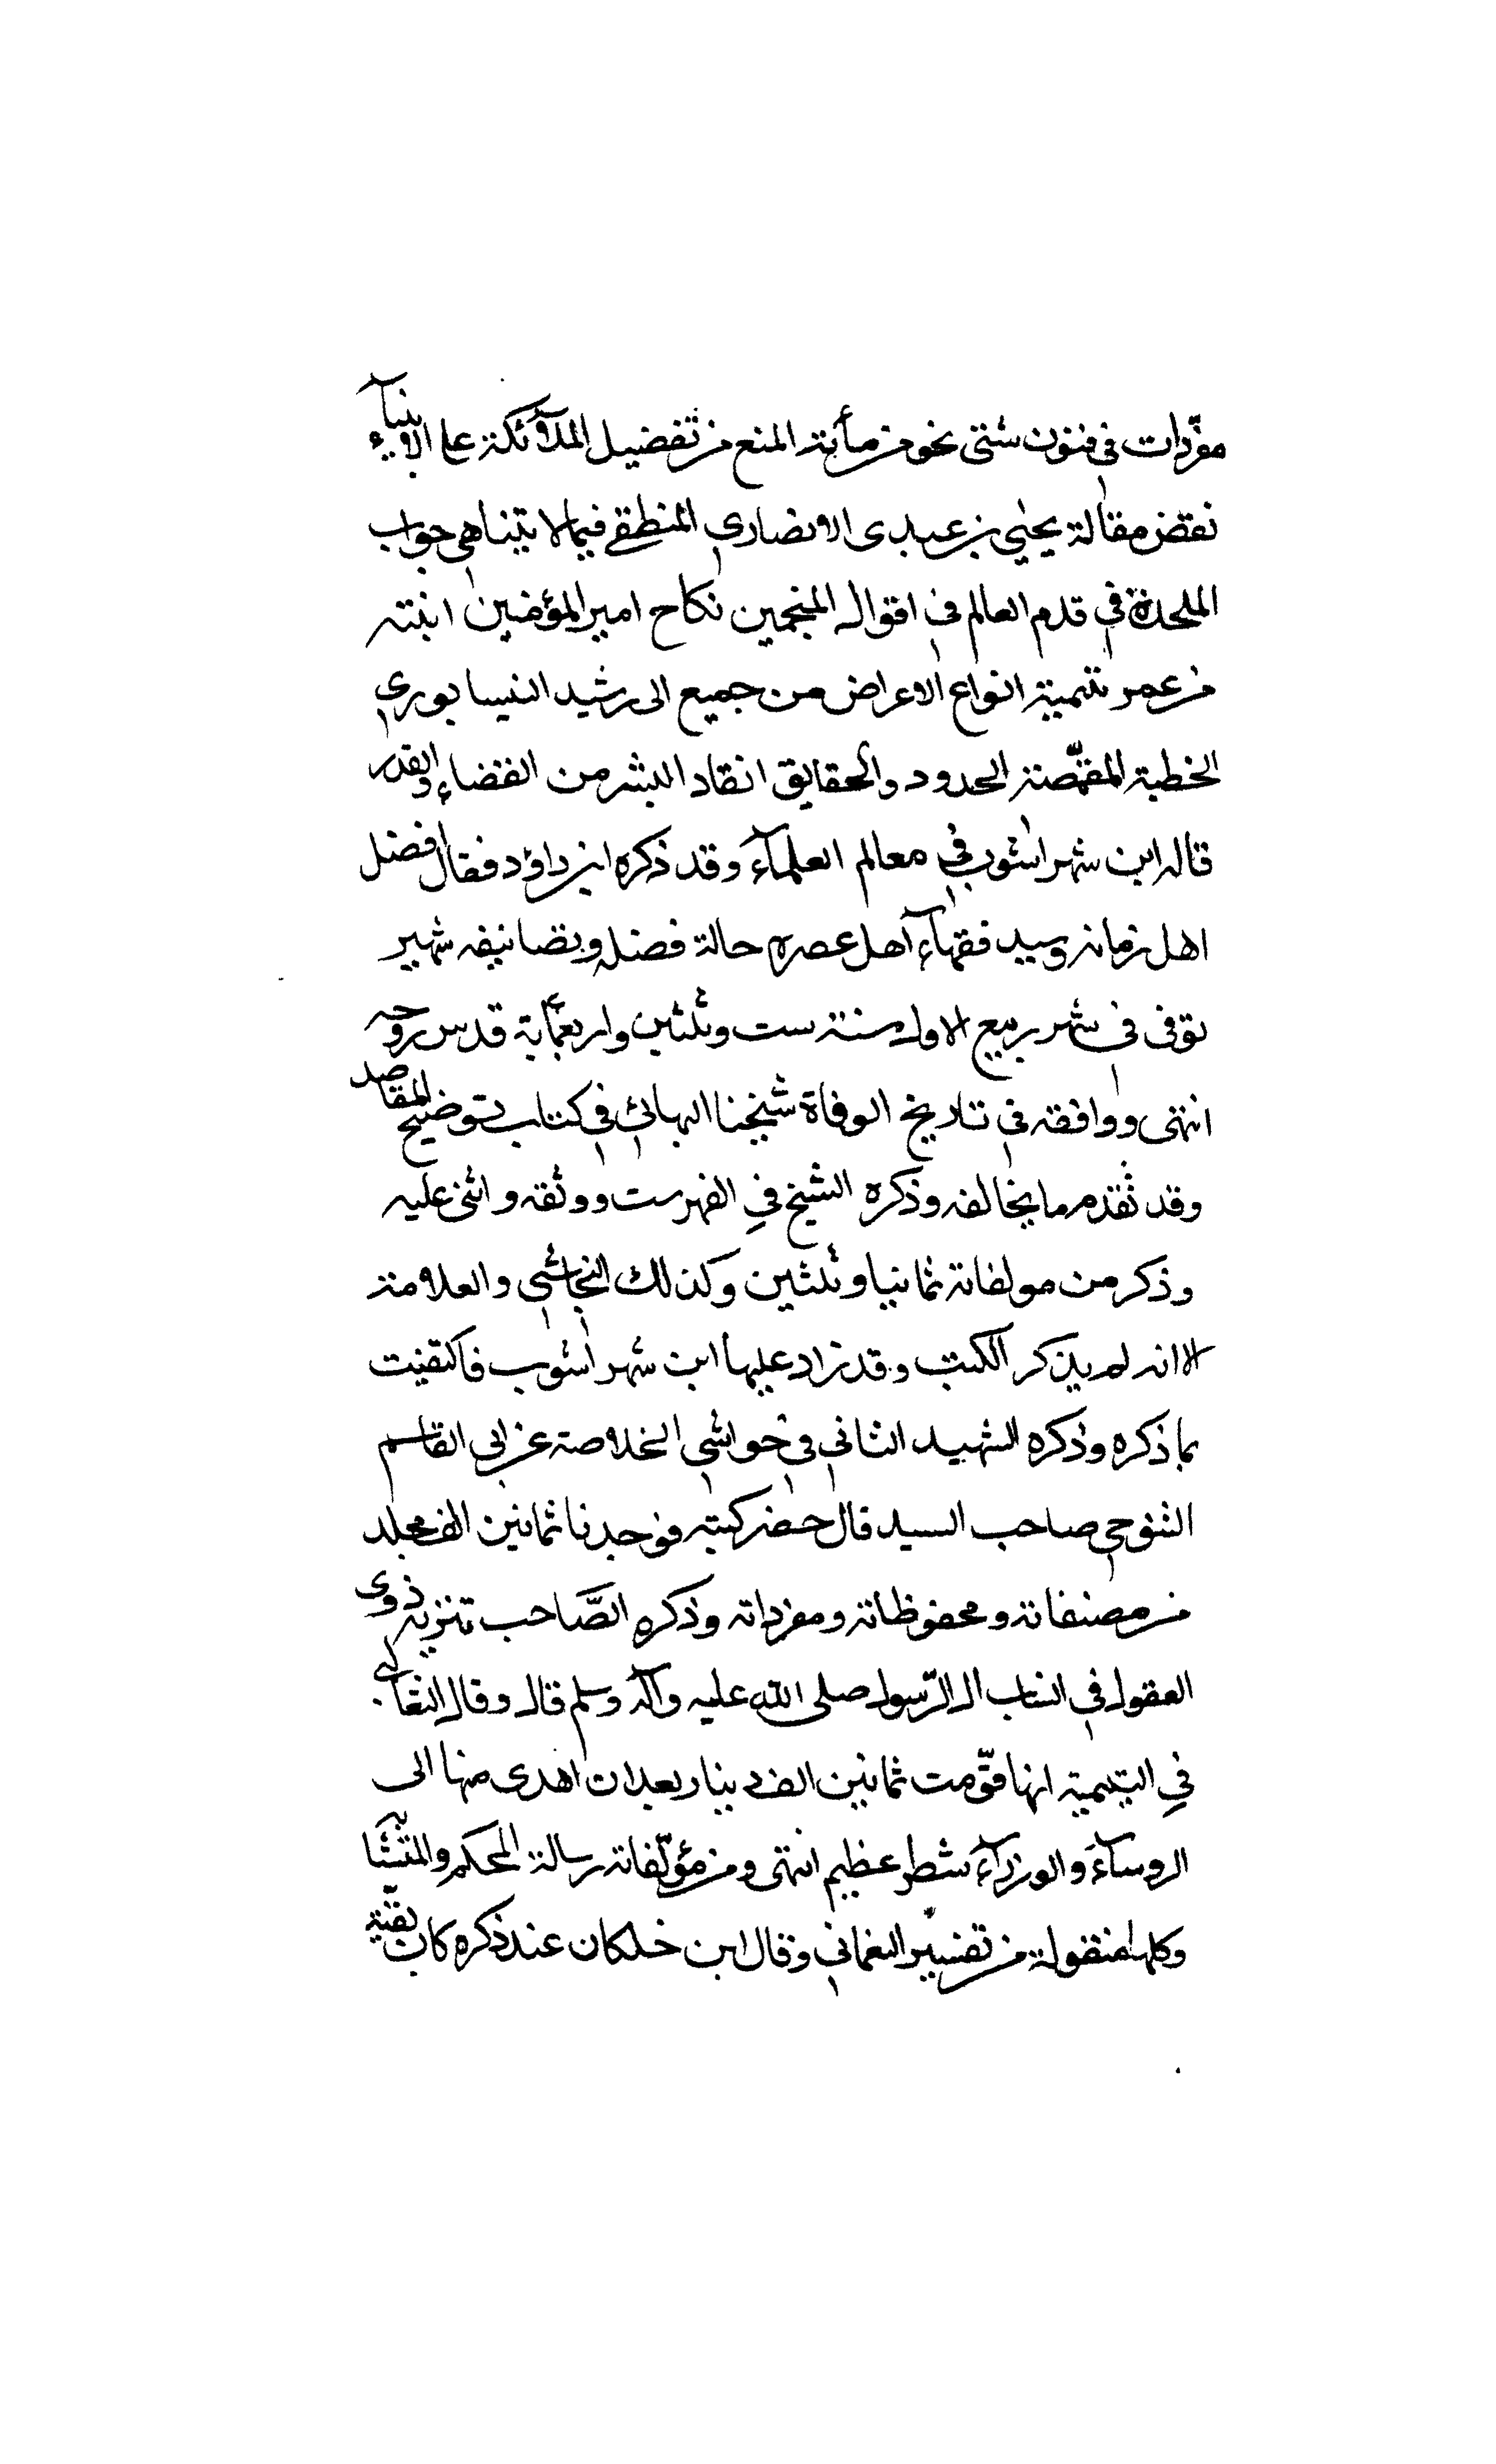 مفردات في فنون شتى نحو من مأبة المنع من تفضيل الملآئكة على الانبيآء
نقض مقالة يحيى بن عبدى الانصارى المنطقي فيما لا يتناهى جواب
الملحدة في قدم العالم في اقوال المنجمين نكاح امير المؤمنين ابنته
من عمر تتمية انواع الاعراض من جميع الى رشيد النيسابورى
الخطبة المقمّصة الحدود والحقايق انقاد البشر من القضاء والقدر
قاله ابن شهراشوب في معالم العلمآء وقد ذكره ابن داؤد فقال افضل
اهل زمانه وسيد فقهآء اهل عصره حالة فضله وتصانيفه شهير
توفى في شهر ربيع الاول سنة ست وثلثين واربعمأبة قدس روحه
انتهى ووافقه في تاريخ الوفاة شيخنا البهائي في كتاب توضيح المقاصد
وقد تقدم ما يخالفه وذكره الشيخ في الفهرست ووثقه واثنى عليه
وذكر من مولفاته ثمانيا وثلثين وكذلك النجاشي والعلامة
الا انه لم يذكر الكتب وقد زاد عليها ابن شهراشوب فاكتفيت
بما ذكره وذكره الشهيد الثاني في حواشي الخلاصة عن ابي القاسم
التنوحي صاحب السيد قال حضر كتبه فوجدنا ثمانين الف مجلد
من مصنفاته ومحفوظاته ومفرداته وذكره الصَّاحب تنزيه ذوى
العقول في انساب ال الرّسول صلى الله عليه وآله وسلم قال وقال الثعالبي
في اليتيمية انها قوّمت ثمانين الف دينار بعد ان اهدى منها الى
الروسآء والوزرآء شطر عظيم انتهى ومن مؤلّفاته رسالة المحكم والمتشابه
وكلها منقولة من تفسير النعماني وقال ابن خلكان عند ذكره كان نقيّة